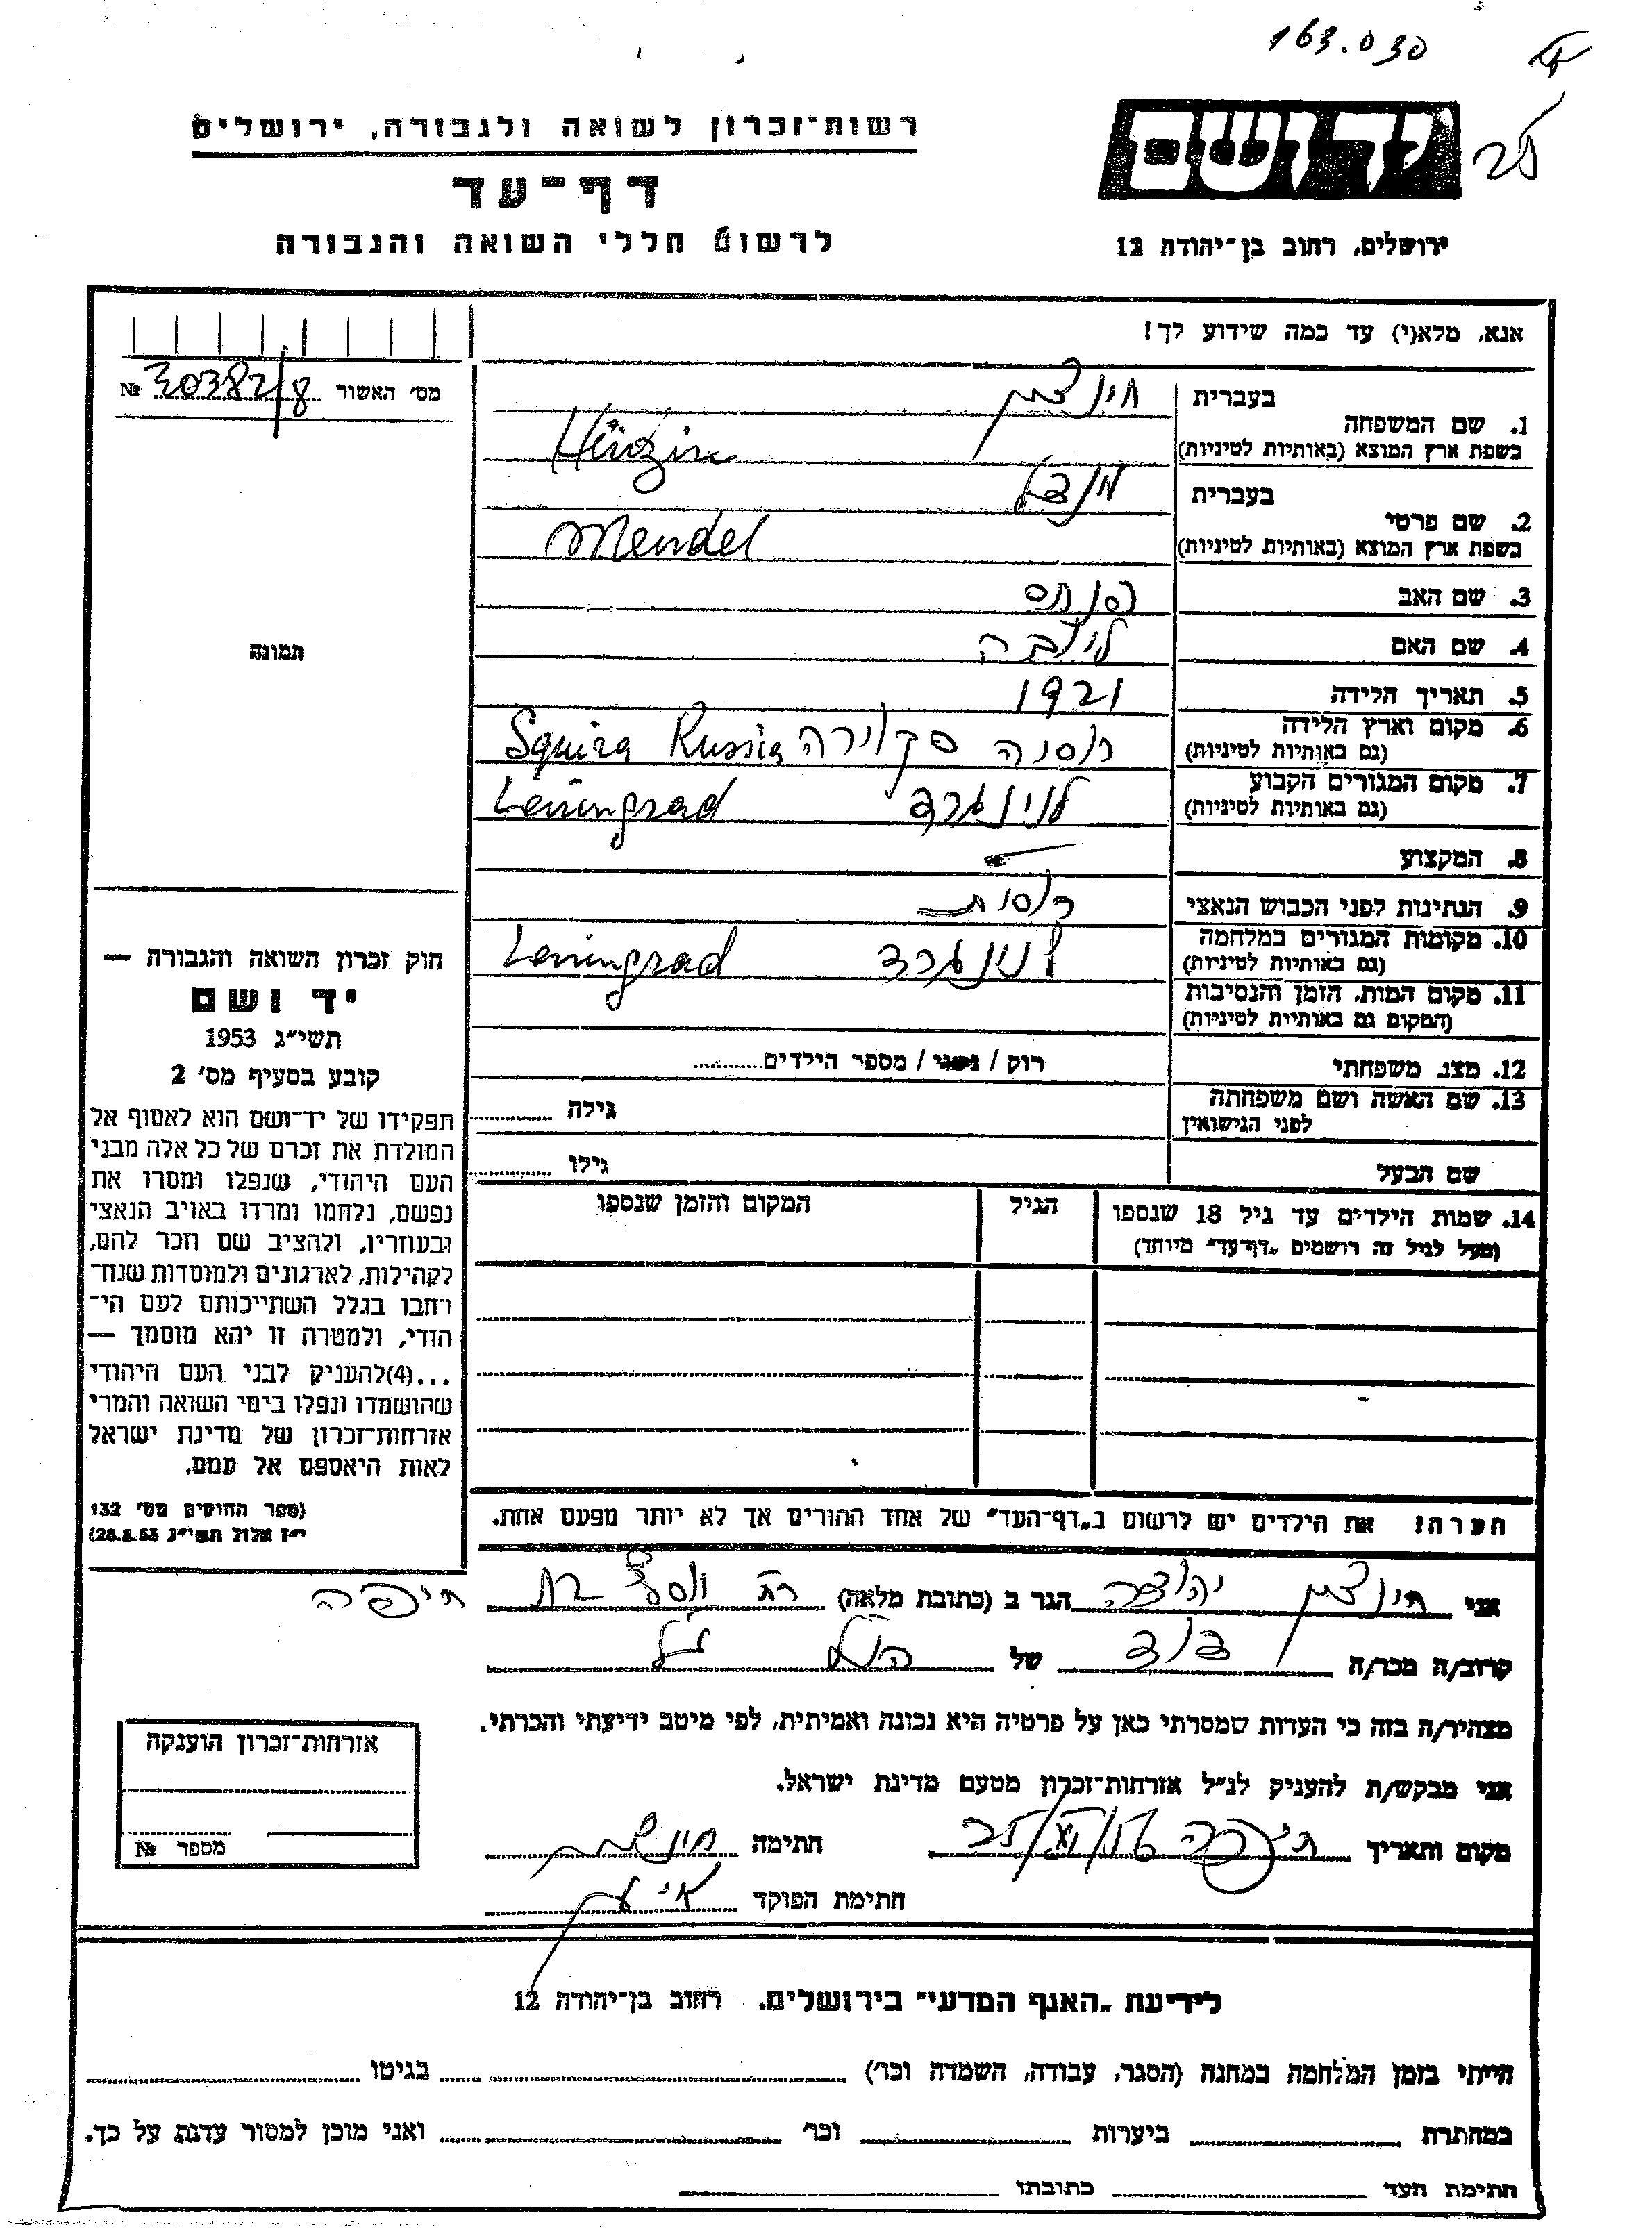 163.030
רשות־זכרון לשואה ולגבורה, ירושלים
יד ושם
דף־עד
לרשום חללי השואה והגבורה
ירושלים, רחוב בן־יהודה 12
אנא, מלא(י) עד כמה שידוע לך!
מס׳ האשור 30382/8 №
בעברית
1. שם המשפחה
בשפת ארץ המוצא (באותיות לטיניות)
בעברית מנדל
2. שם פרטי
בשפת ארץ המוצא (באותיות לטיניות) Mendel
3. שם האב פנחס
4. שם האם
תמונה
5. תאריך הלידה 1921
6. מקום וארץ הלידה
(גם באותיות לטיניות) רוסיה סקוירה Squira Russia
7. מקום המגורים הקבוע
(גם באותיות לטיניות) לנינגרד Leningrad
8. המקצוע
9. הנתינות לפני הכבוש הנאצי רוסית
10. מקומות המגורים במלחמה
(גם באותיות לטיניות) לנינגרד Leningrad
11. מקום המות, הזמן והנסיבות
(המקום גם באותיות לטיניות)
12. מצב משפחתי רוק / נשוי / מספר הילדים
13. שם האשה ושם משפחתה גילה
לפני הנישואין
שם הבעל גילו
14. שמות הילדים עד גיל 18 שנספו הגיל המקום והזמן שנספו
(מעל לגיל זה רושמים „דף־עד״ מיוחד)
חוק זכרון השואה והגבורה —
יד ושם
תשי״ג 1953
קובע בסעיף מס׳ 2
תפקידו של יד־ושם הוא לאסוף אל
המולדת את זכרם של כל אלה מבני
העם היהודי, שנפלו ומסרו את
נפשם, נלחמו ומרדו באויב הנאצי
ובעוזריו, ולהציב שם וזכר להם,
לקהילות, לארגונים ולמוסדות שנח־
רחבו בגלל השתייכותם לעם הי־
הודי, ולמטרה זו יהא מוסמך —
...(4)להעניק לבני העם היהודי
שהושמדו ונפלו בימי השואה והמרי
אזרחות־זכרון של מדינת ישראל
לאות היאספם אל עמם.
(ספר החוקים מס׳ 132
י״ז אלול תשי״ג 28.8.53)
הערה! את הילדים יש לרשום ב„דף־העד״ של אחד ההורים אך לא יותר מפעם אחת.
אני יהודה הגר ב (כתובת מלאה) חיפה
קרוב/ה מכר/ה דוד של הנ״ל
מצהיר/ה בזה כי העדות שמסרתי כאן על פרטיה היא נכונה ואמיתית, לפי מיטב ידיעתי והכרתי.
אני מבקש/ת להעניק לנ״ל אזרחות־זכרון מטעם מדינת ישראל.
מקום ותאריך חיפה חתימה
חתימת הפוקד
אזרחות־זכרון הוענקה
מספר №
לידיעת „האגף המדעי״ בירושלים, רחוב בן־יהודה 12
הייתי בזמן המלחמה במחנה (הסגר, עבודה, השמדה וכו׳) בגיטו
במחתרת ביערות וכו׳ ואני מוכן למסור עדות על כך.
חתימת העד כתובתו